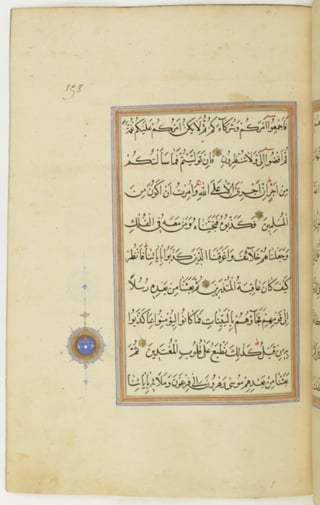 فَأَجْمِعُوا أَمْرَكُمْ وَشُرَكَاءَكُمْ ثُمَّ لَا يَكُنْ أَمْرُكُمْ عَلَيْكُمْ غُمَّةً
ثُمَّ اقْضُوا إِلَيَّ وَلَا تُنْظِرُونِ فَإِنْ تَوَلَّيْتُمْ فَمَا سَأَلْتُكُمْ
مِنْ أَجْرٍ إِنْ أَجْرِيَ إِلَّا عَلَى اللَّهِ وَأُمِرْتُ أَنْ أَكُونَ مِنَ
الْمُسْلِمِينَ فَكَذَّبُوهُ فَنَجَّيْنَاهُ وَمَنْ مَعَهُ فِي الْفُلْكِ
وَجَعَلْنَاهُمْ خَلَائِفَ وَأَغْرَقْنَا الَّذِينَ كَذَّبُوا بِآيَاتِنَا فَانْظُرْ
كَيْفَ كَانَ عَاقِبَةُ الْمُنْذَرِينَ ثُمَّ بَعَثْنَا مِنْ بَعْدِهِ رُسُلًا
إِلَى قَوْمِهِمْ فَجَاءُوهُمْ بِالْبَيِّنَاتِ فَمَا كَانُوا لِيُؤْمِنُوا بِمَا كَذَّبُوا
بِهِ مِنْ قَبْلُ كَذَلِكَ نَطْبَعُ عَلَى قُلُوبِ الْمُعْتَدِينَ ثُمَّ
بَعَثْنَا مِنْ بَعْدِهِمْ مُوسَى وَهَرُونَ إِلَى فِرْعَوْنَ وَمَلَئِهِ بِآيَاتِنَا